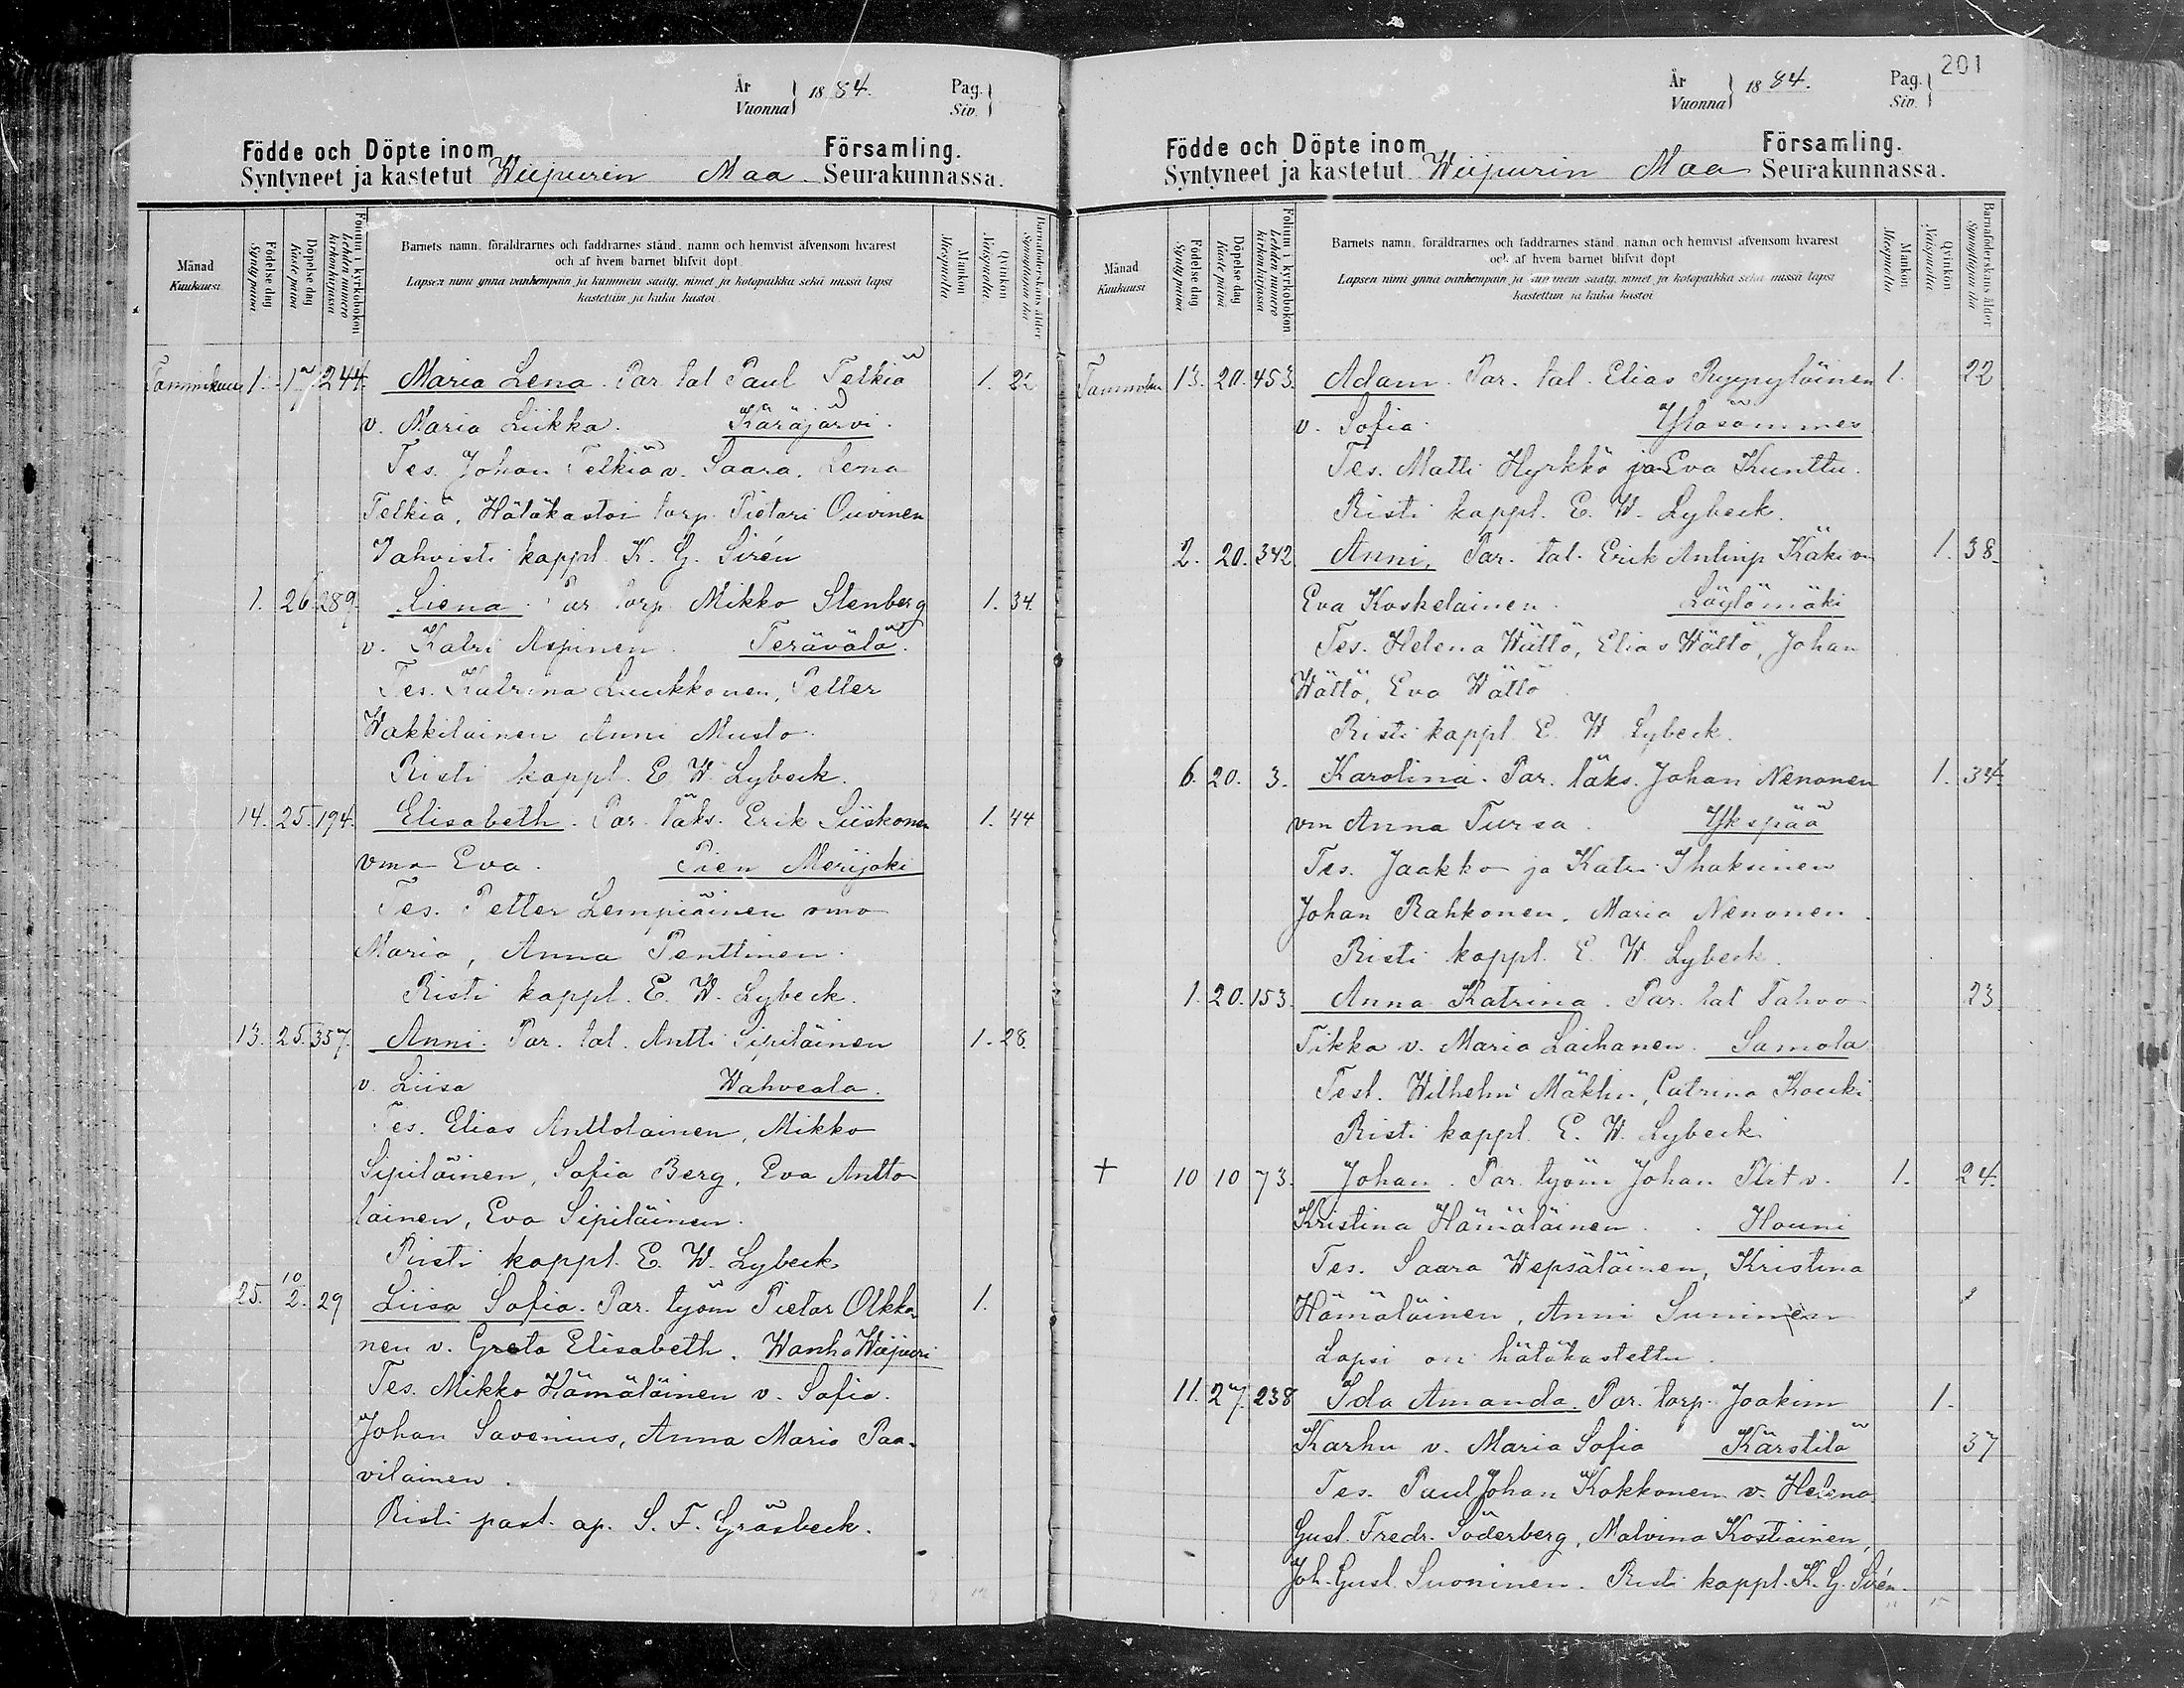 År
Vuonna } 1884. Pag.
Siv. }
Födde och Döpte inom Församling.
Syntyneet ja kastetut Wiipurin Maa Seurakunnassa.
Månad
Kuukausi
Födelse dag
Syntypäivä
Döpelse dag
Kastepäivä
Folium i kyrkoboken
Lehden numero
kirkonkirjassa
Barnets namn, föräldrarnes och faddrarnes stånd, namn och hemvist äfvensom hvarest
och af hvem barnet blifvit döpt
Lapsen nimi ynnä vanhempain ja kummein sääty, nimet ja kotopaikka sekä missä lapsi
kastettiin ja kuka kastoi
Mankön
Miespuolta
Qvinkön
Naispuolta
Barnaföderskans ålder
Synnyttäjän ikä
Tammikuu 1. 17 244. Maria Lena. Par. tal Paul Telkiä 1. 22
v. Maria Liikka. Käräjärvi.
Tes. Johan Telkiä v. Saara. Lena
Telkiä, Hätäkastoi torp. Pietari Ouvinen
Vahvisti kappl. K. G. Sirén
1. 26. 289. Liena. Par torp. Mikko Stenberg 1. 34.
v. Katri Aspinen. Terävälä.
Tes. Katrina Luukkonen, Petter
Wakkilainen Anni Musto.
Risti kappl. E W. Lybeck.
14. 25. 194. Elisabeth. Par. läks. Erik Siiskonen 1. 44
vmo Eva. Pien Merijoki
Tes. Petter Lempiäinen vmo
Maria, Anna Penttinen.
Risti kappl. E. W. Lybeck.
13. 25. 357. Anni. Par. tal. Antti Sipiläinen 1. 28.
v. Liisa Wahveala.
Tes. Elias Anttolainen, Mikko
Sipiläinen, Sofia Berg, Eva Antto
lainen, Eva Sipiläinen.
Risti kappl. E. W. Lybeck
25. 10/2. 29 Liisa Sofia. Par. työm Pietar Olkko- 1.
nen v. Greta Elisabeth. Wanha Wiipuri
Tes. Mikko Hämäläinen v. Sofia.
Johan Savenius, Anna Maria Paa-
vilainen.
Risti past. ap. S. F. Gräsbeck.
201
År
Vuonna } 1884. Pag.
Siv. }
Födde och Döpte inom Församling.
Syntyneet ja kastetut Wiipurin Maa Seurakunnassa.
Månad
Kuukausi
Födelse dag
Syntypäivä
Döpelse dag
Kastepäivä
Folium i kyrkoboken
Lehden numero
kirkonkirjassa
Barnets namn, föräldrarnes och faddrarnes stånd, namn och hemvist äfvensom hvarest
och af hvem barnet blifvit döpt
Lapsen nimi ynnä vanhempain ja kummein sääty, nimet ja kotopaikka sekä missä lapsi
kastettiin ja kuka kastoi
Mankön
Miespuolta
Qvinkön
Naispuolta
Barnaföderskans ålder
Synnyttäjän ikä
13. 20. 453. Adam. Par. tal. Elias Ryypyläinen 1. 22
v. Sofia. Yläsommee
Tes. Matti Hyrkkö ja Eva Kunttu.
Risti kappl. E. W. Lybeck.
2. 20. 342 Anni, Par. tal. Erik Antinp Käki vm 1. 38.
Eva Koskelainen. Löylömäki
Tes. Helena Wättö, Elias Wättö, Johan
Wättö, Eva Wättö
Risti kappl. E. W Lybeck.
6. 20. 3. Karolina. Par. läks. Johan Nenonen 1. 34.
vm Anna Tursa. Ykspää
Tes. Jaakko ja Katri Ihaksinen
Johan Rahkonen, Maria Nenonen.
Risti kappl. E. W. Lybeck.
1. 20. 153. Anna Katrina. Par. tal Tahvo 23
Tikka v. Maria Laihanen. Samola
Test. Wilhelm Mäklin, Catrina Kouki
Risti kappl. E. W. Lybeck
+ 10 10 73. Johan. Par. työm Johan v. 1. 24.
Kristina Hämäläinen. Houni
Tes. Saara Wepsäläinen, Kristina
Hämäläinen, Anni Suninen
Lapsi on hätäkastettu.
11. 27. 238 Ida Amanda. Par. torp. Joakim 1.
Karhu v. Maria Sofia Kärstilä 37
Tes. Paul Johan Kokkonen v. Helena
Gust. Fredr. Söderberg, Malvina Kostiainen,
Joh. Gust. Suoninen. Risti kappl. K. G. Sirén.